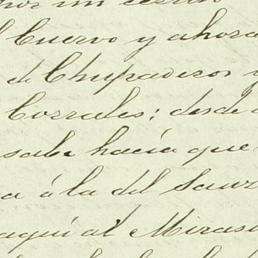 Cuervo y ahora
de Chupaderos y
Corrales; desde
sabe hacia que
a á la del Sauz
aquí al Miras